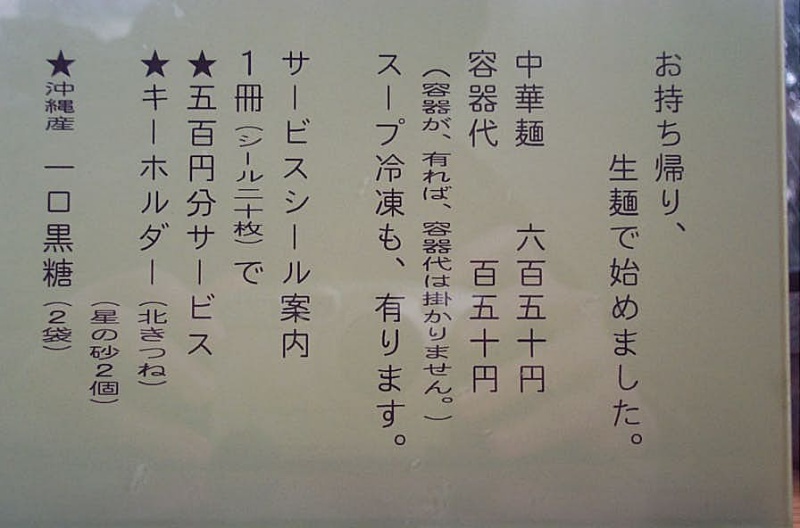 お持ち帰り、
生麺で始めました。
中華麺 六百五十円
容器代 百五十円
(容器が、有れば、容器代は掛かりません。)
スープ冷凍も、有ります。
サービスシール案内
1冊(シール二十枚)で
★五百円分サービス
★キーホルダー(北きつね)
(星の砂2個)
★沖縄産 一口黒糖(2袋)